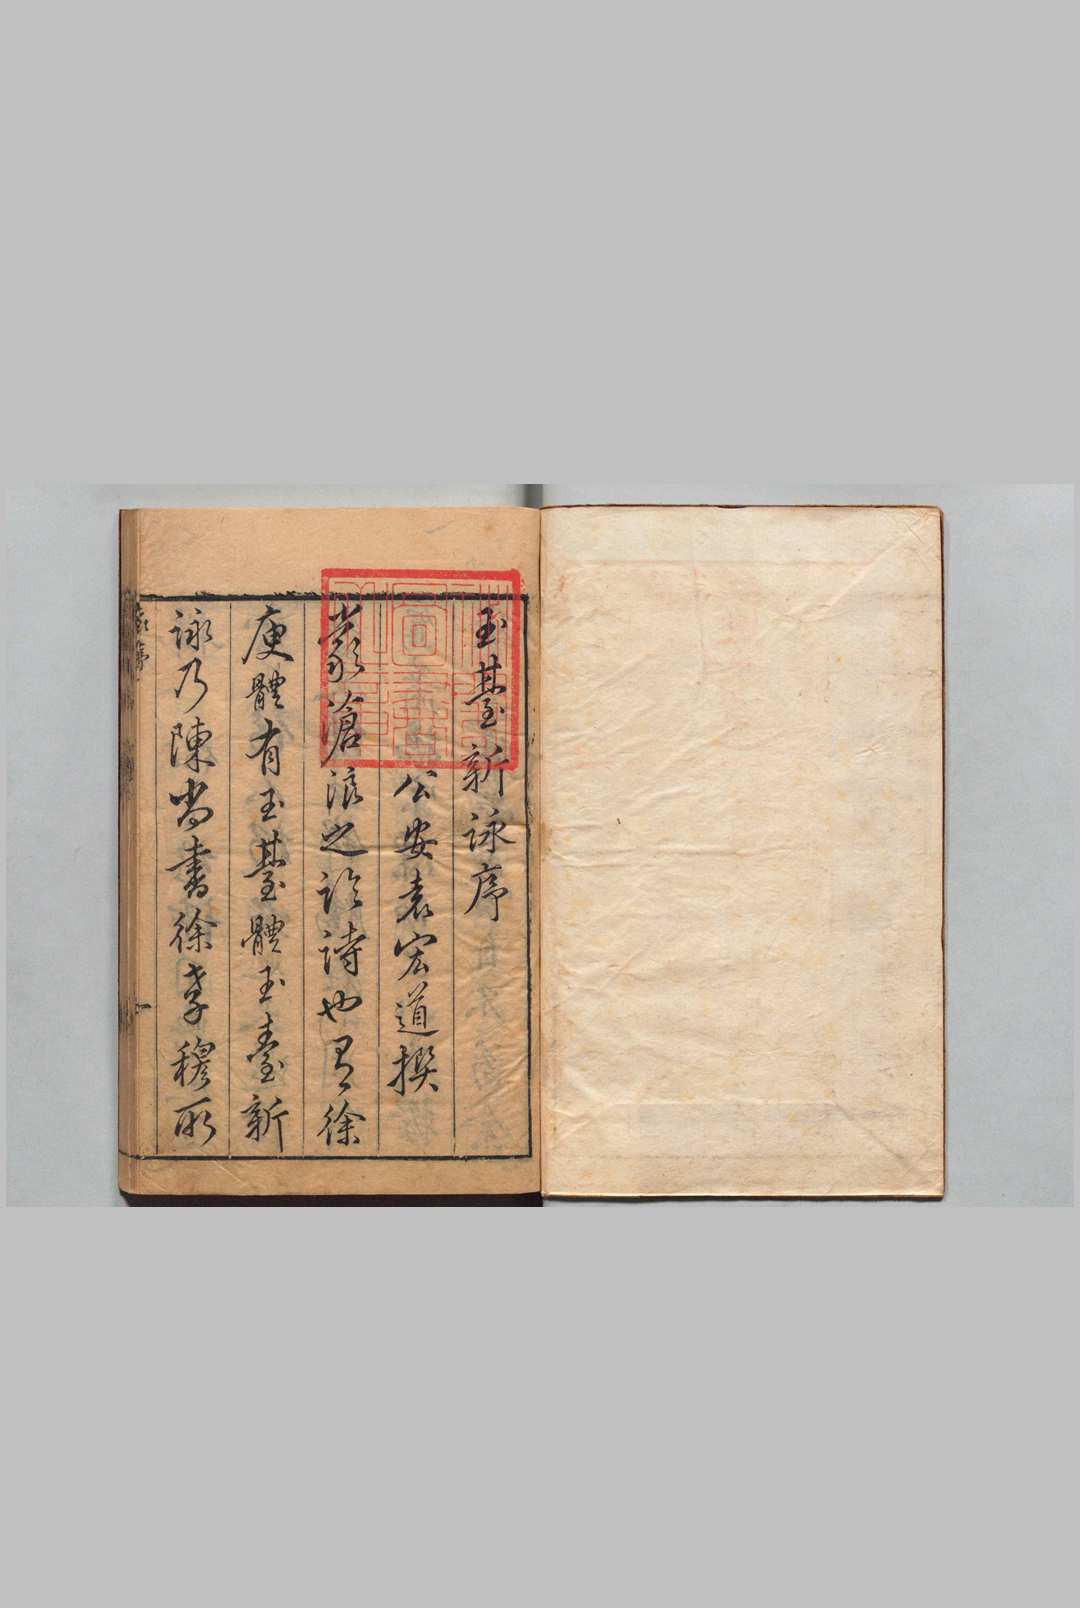 玉臺新詠序
公安袁宏道撰
嚴滄浪之論詩也有徐
庾體有玉臺體玉臺新
詠乃陳尚書徐孝穆所